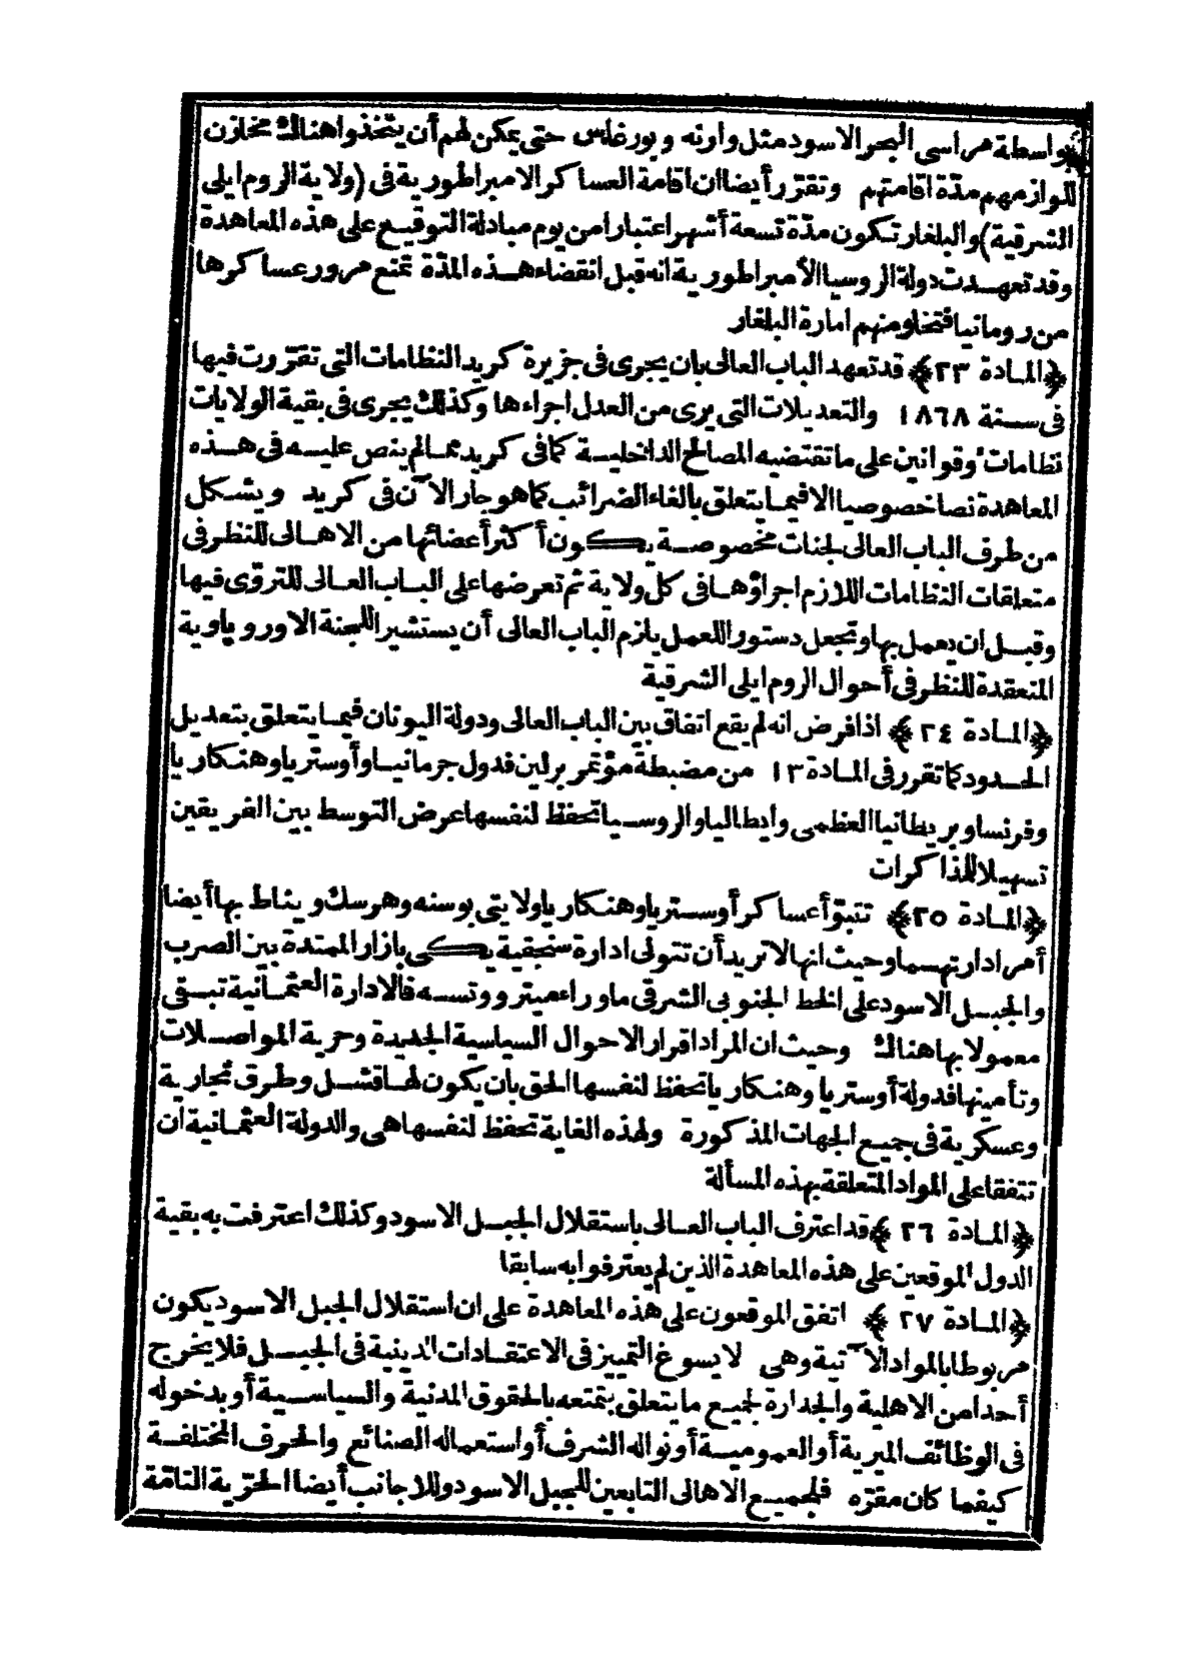 بواسطة مراسى البحر الاسود مثل وارنه وبورغاس حتى يمكن لهم أن يتخذوا هناك مخازن
للوازمهم مدّة اقامتهم وتقرّر أيضا ان اقامة العساكر الامبراطورية فى (ولاية الروم ايلى
الشرقية) والبلغار تكون مدّة تسعة أشهر اعتبارا من يوم مبادلة التوقيع على هذه المعاهدة
وقد تعهدت دولة الروسيا الأمبراطورية انه قبل انقضاء هذه المدّة تمنع مرور عساكرها
من رومانيا فتخلو منهم امارة البلغار
﴿المادة ٢٣﴾ قد تعهد الباب العالى بان يجرى فى جزيرة كريد النظامات التى تقرّرت فيها
فى سنة ١٨٦٨ والتعديلات التى يرى من العدل اجراءها وكذلك يجرى فى بقية الولايات
نظامات وقوانين على ما تقتضيه المصالح الداخلية كما فى كريد مما لم ينص عليه فى هذه
المعاهدة نصا خصوصيا الا فيما يتعلق بالغاء الضرائب كما هو جار الآن فى كريد ويشكل
من طرف الباب العالى لجنات مخصوصة يكون أكثر أعضائها من الاهالى للنظر فى
متعلقات النظامات اللازم اجراؤها فى كل ولاية ثم تعرضها على الباب العالى للتروّى فيها
وقبل ان يعمل بها وتجعل دستورا للعمل يلزم الباب العالى أن يستشير اللجنة الاوروپاوية
المنعقدة للنظر فى أحوال الروم ايلى الشرقية
﴿المادة ٢٤﴾ اذا فرض انه لم يقع اتفاق بين الباب العالى ودولة اليونان فيما يتعلق بتعديل
الحدود كما تقرر فى المادة ١٣ من مضبطة مؤتمر برلين فدول جرمانيا وأوستريا وهنكاريا
وفرنسا وبريطانيا العظمى وايطاليا والروسيا تحفظ لنفسها عرض التوسط بين الفريقين
تسهيلا للمذاكرات
﴿المادة ٢٥﴾ تتبوّأ عساكر أوستريا وهنكاريا ولايتى بوسنه وهرسك ويناط بها أيضا
أمر ادارتهما وحيث انها لا تريد أن تتولى ادارة سنجقية يكى بازار الممتدة بين الصرب
والجبل الاسود على الخط الجنوبى الشرقى ما وراء ميتروو تسه فالادارة العثمانية تبقى
معمولا بها هناك وحيث ان المراد اقرار الاحوال السياسية الجديدة وحرية المواصلات
وتأمينها فدولة أوستريا وهنكاريا تحفظ لنفسها الحق بان يكون لها قشل وطرق تجارية
وعسكرية فى جميع الجهات المذكورة ولهذه الغاية تحفظ لنفسها هى والدولة العثمانية ان
تتفقا على المواد المتعلقة بهذه المسألة
﴿المادة ٢٦﴾ قد اعترف الباب العالى باستقلال الجبل الاسود وكذلك اعترفت به بقية
الدول الموقعين على هذه المعاهدة الذين لم يعترفوا به سابقا
﴿المادة ٢٧﴾ اتفق الموقعون على هذه المعاهدة على ان استقلال الجبل الاسود يكون
مربوطا بالمواد الآتية وهى لا يسوغ التمييز فى الاعتقادات الدينية فى الجبل فلا يخرج
أحدا من الاهلية والجدارة لجميع ما يتعلق بتمتعه بالحقوق المدنية والسياسية أو بدخوله
فى الوظائف الميرية أو العمومية أو نواله الشرف أو استعماله الصنائع والحرف المختلفة
كيفما كان مقرّه فلجميع الاهالى التابعين للجبل الاسود وللاجانب أيضا الحرّية التامّة